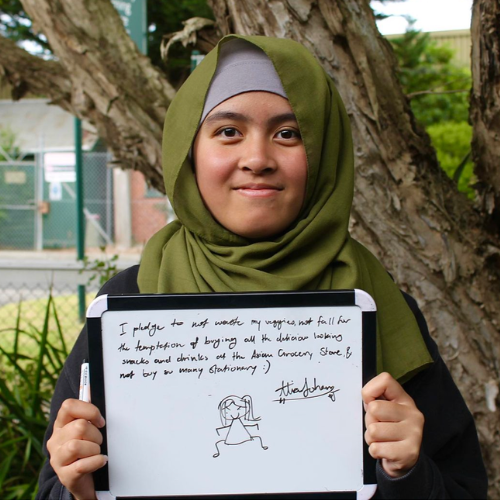 I pledge to not waste my veggies, not fall for
the temptation of buying all the delicious looking
snacks and drinks at the Asian Grocery Store, &
not buy so many stationary :)